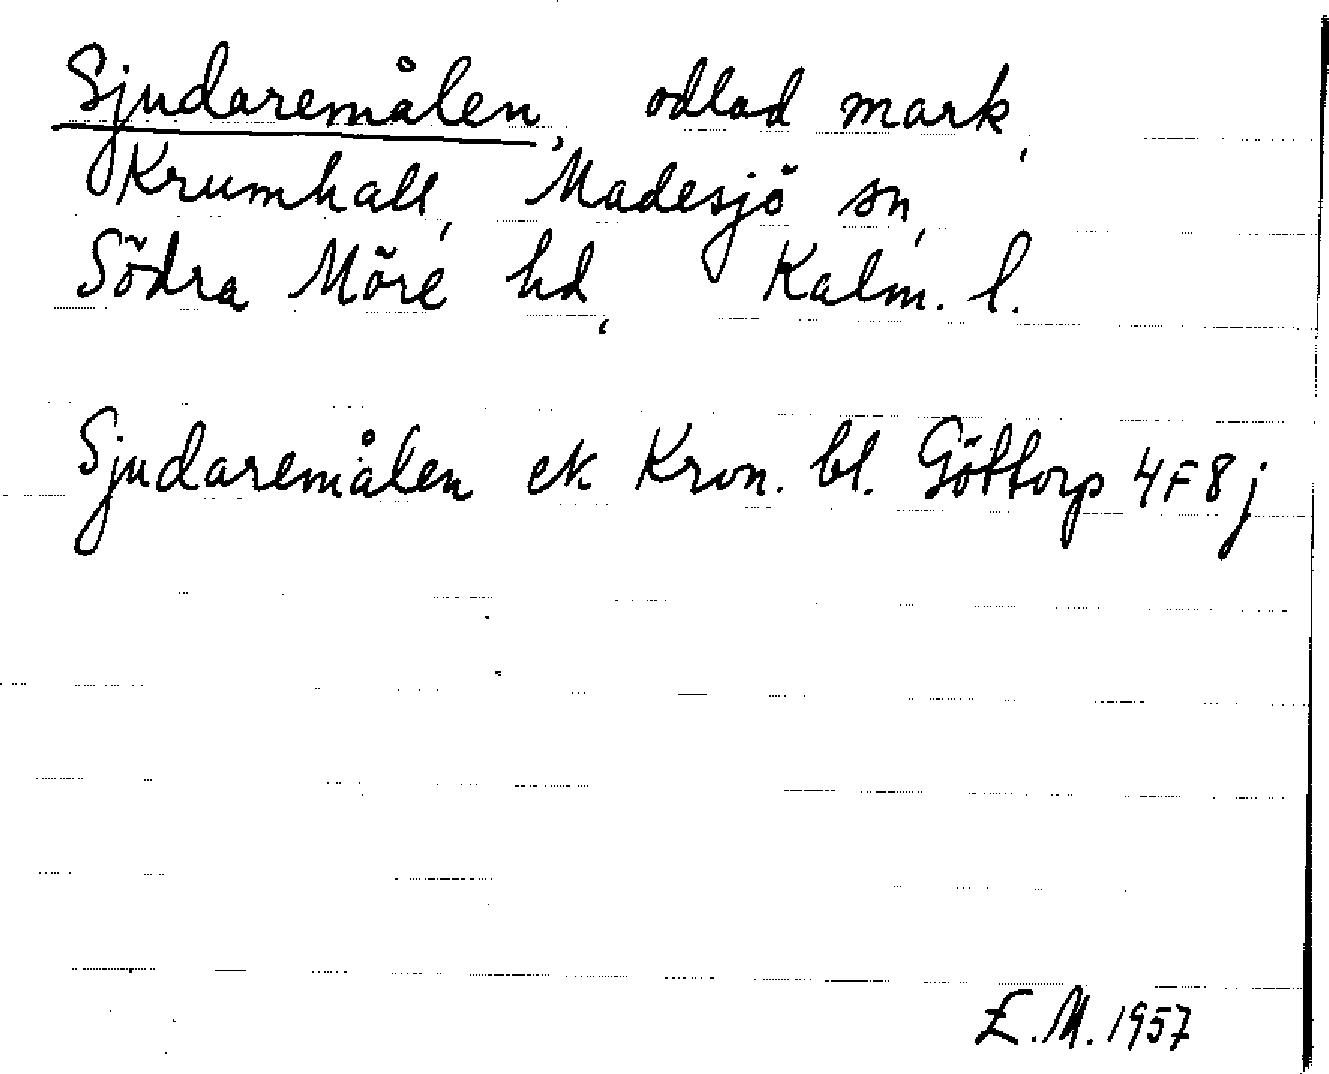 Sjudaremålen, odlad mark,
Krumhall, Madesjö sn,
Södra Möre hd, Kalm. l.
Sjudaremålen ek Kron. bl. Göttorp 4F8j
E.M. 1957